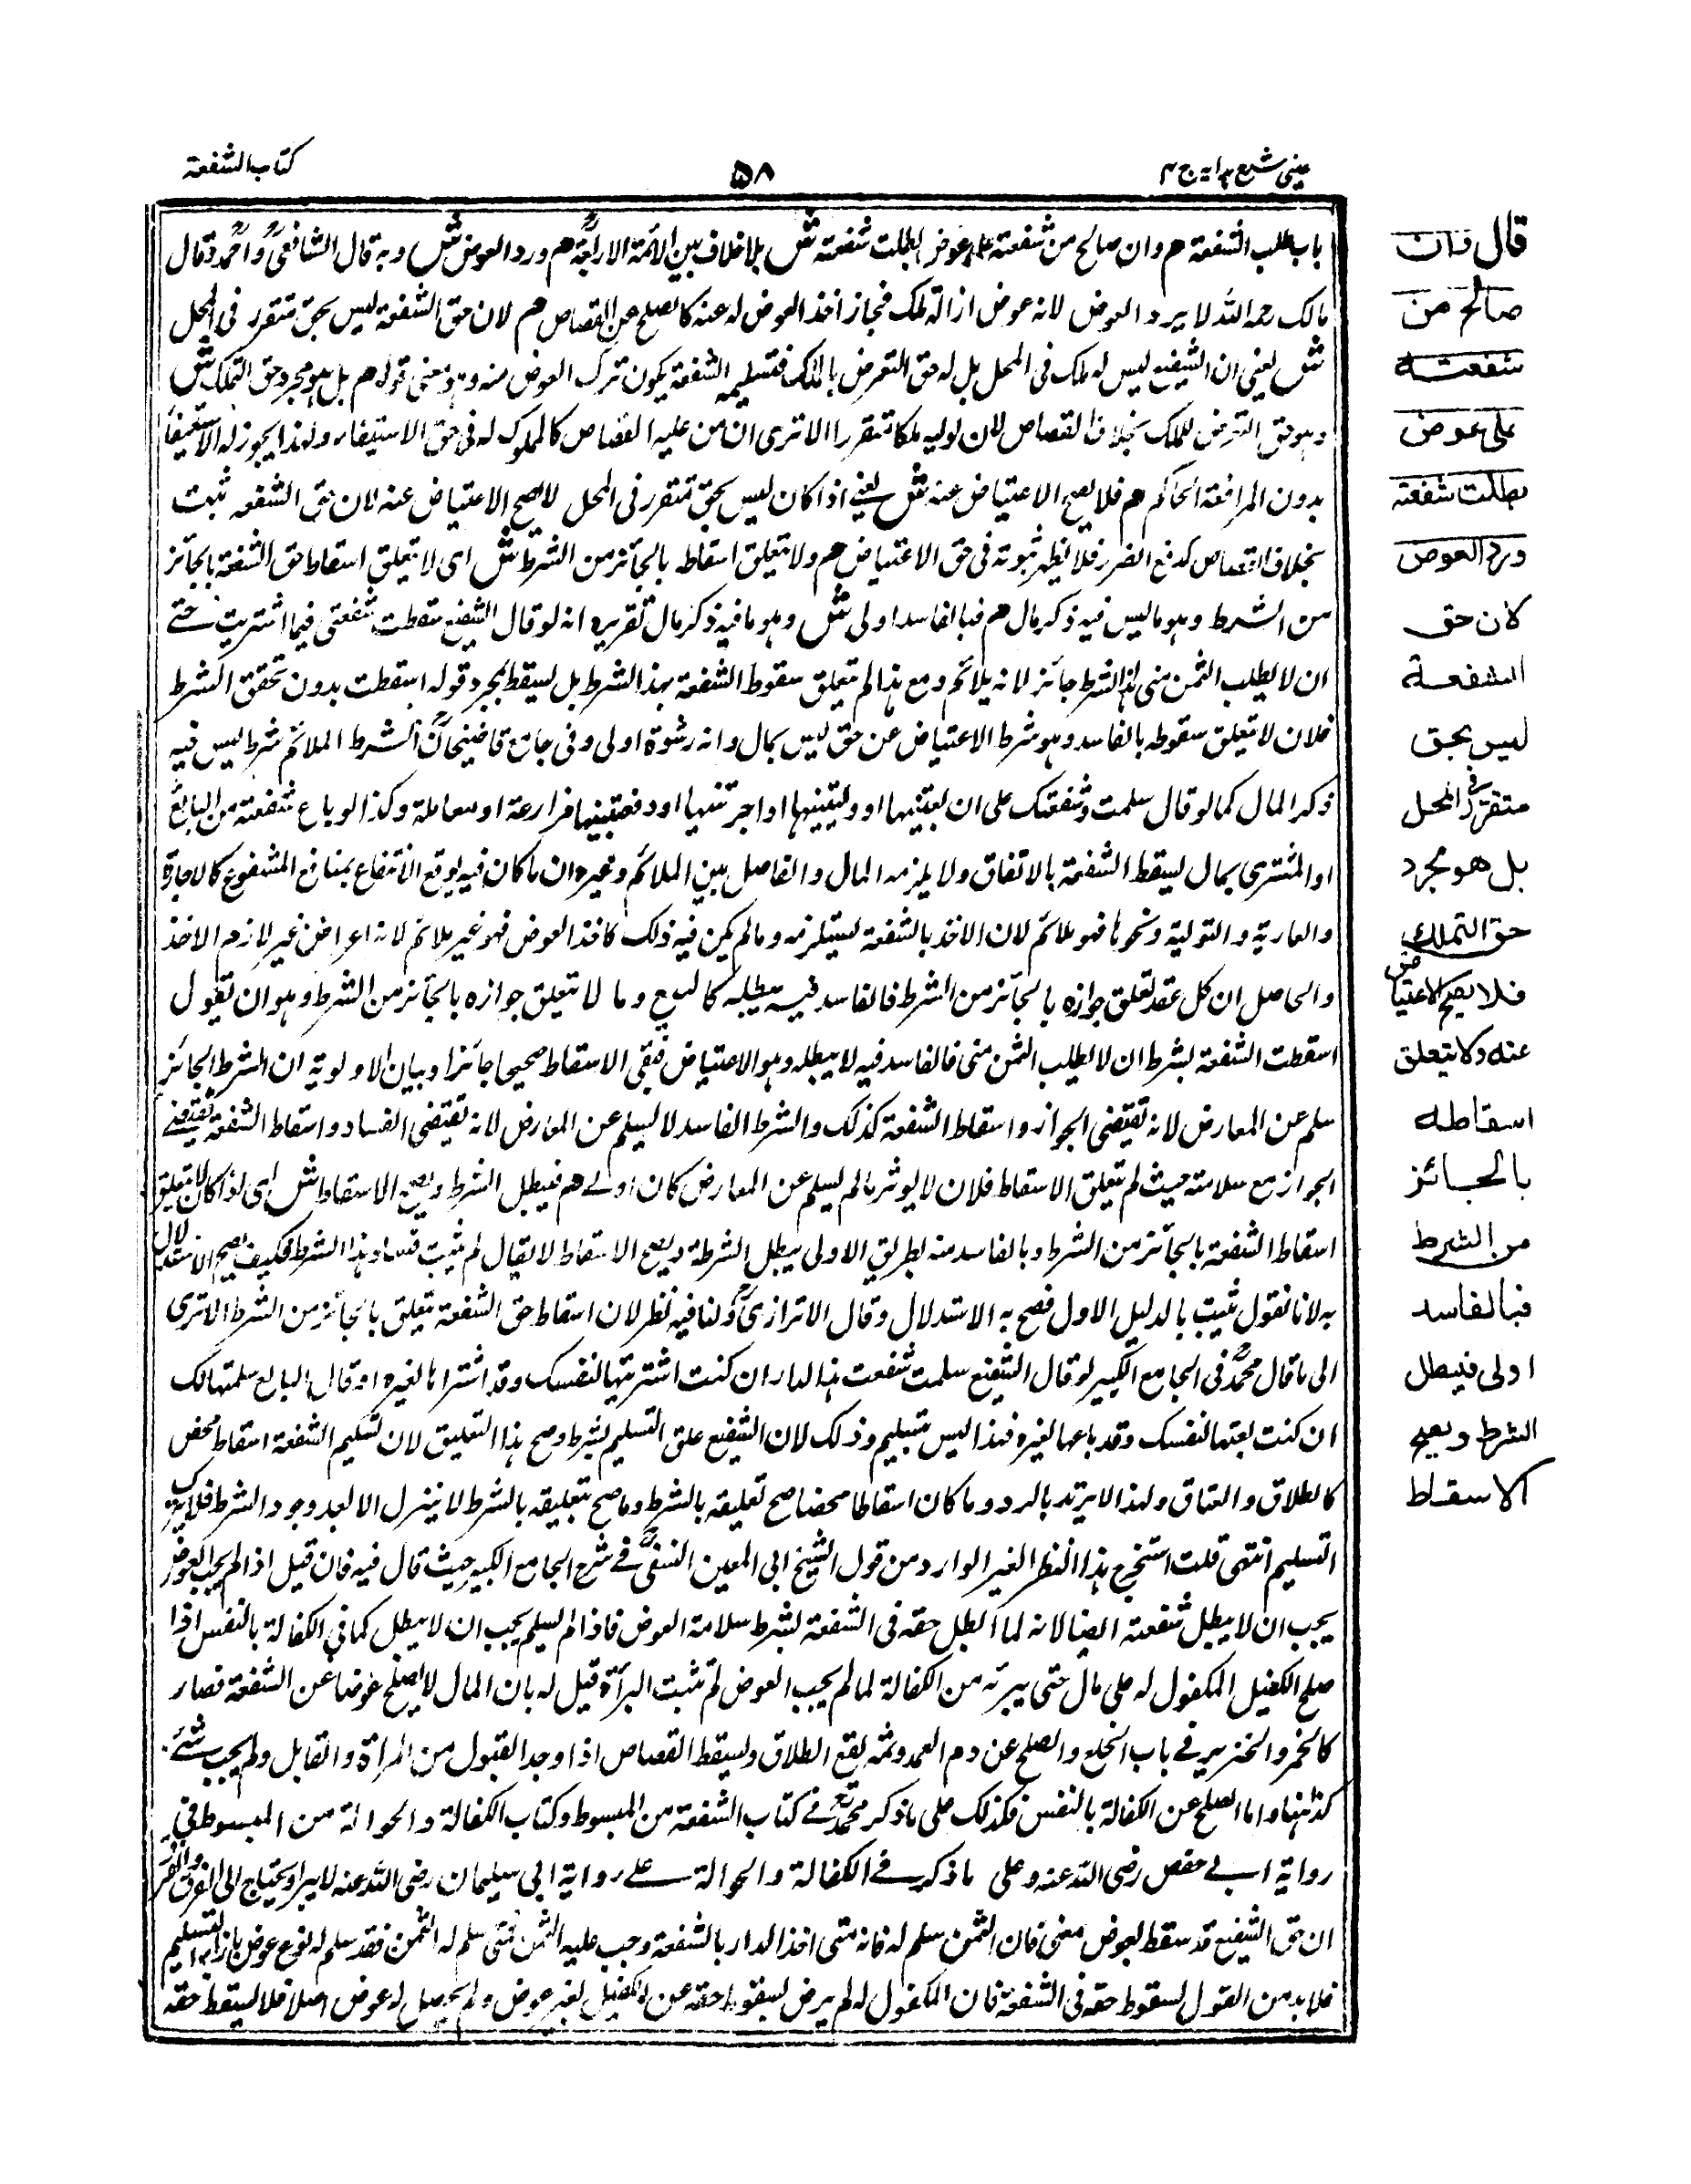 عینی شرح ہدایہ ج ۴
۵۸
کتاب الشفعة
باب طلب الشفعة هم وان صالح من شفعته علی عوض بطلت شفعته ش بلا خلاف بین الائمة الاربعة هم ورد العوض ش وبه قال الشافعی واحمد وقال
مالک رحمه الله لا یرد العوض لانه عوض ازالة ملک فجاز اخذ العوض له عنه کالصلح عن القصاص هم لان حق الشفعة لیس بحق متقرر فی المحل
ش یعنی ان الشفیع لیس له ملک فی المحل بل له حق التعرض بالملک فتسلیمه الشفعة یکون ترک العوض منه وهو معنی قوله هم بل هو مجرد حق التملک ش
وهو حق التعرض للملک بخلاف القصاص لان لولیه ملکا متقررا الا تری ان من علیه القصاص کالمملوک له فی حق الاستیفاء ولهذا یجوز له الاستیفاء
بدون المرافعة الحاکم هم فلا یصح الاعتیاض عنه ش یعنی اذا کان لیس بحق متقرر فی المحل لا یصح الاعتیاض عنه لان حق الشفعه ثبت
بخلاف القصاص لدفع الضرر فلا یظهر ثبوته فی حق الاعتیاض هم ولا یتعلق اسقاطه بالجائز من الشرط ش ای لا یتعلق اسقاط حق الشفعة بالجائز
من الشرط وهو ما لیس فیه ذکر مال هم فبالفاسد اولی ش وهو ما فیه ذکر مال تقریره انه لو قال الشفیع سقطت شفعتی فیما اشتریت حتی
ان لا یطلب الثمن منی لهذا الشرط جائز لانه یلائم ومع هذا لم یتعلق سقوط الشفعة بهذا الشرط بل یسقط بمجرد قوله اسقطت بدون تحقق الشرط
فلان لا یتعلق سقوطه بالفاسد وهو شرط الاعتیاض عن حق لیس بمال وانه رشوة اولی وفی جامع قاضیخان الشرط الملائم شرط لیس فیه
ذکر المال کما لو قال سلمت شفعتک علی ان بعتنیها او ولیتنیها او اجرتنیها او دفعتنیها مزارعة او معاملة وکذا لو باع شفعته من البائع
او المشتری بمال یسقط الشفعة بالاتفاق ولا یلزمه المال والفاصل بین الملائم وغیره ان ما کان فیه توقع الانتفاع بمنافع المشفوع کالاجارة
والعاریة والتولیة ونحوها فهو ملائم لان الاخذ بالشفعة یستلزمه وما لم یکن فیه ذلک کاخذ العوض فهو غیر ملائم لانه اعراض غیر لازم الاخذ
والحاصل ان کل عقد تعلق جوازه بالجائز من الشرط فالفاسد فیه یبطله کالبیع وما لا یتعلق جوازه بالجائز من الشرط وهو ان تقول
اسقطت الشفعة بشرط ان لا یطلب الثمن منی فالفاسد فیه لا یبطله وهو الاعتیاض فبقی الاسقاط صحیحا جائزا وبیان الاولویة ان الشرط الجائز
سلم عن المعارض لانه یقتضی الجواز واسقاط الشفعة کذلک والشرط الفاسد لا یسلم عن المعارض لانه یقتضی الفساد واسقاط الشفعة یقتضی
الجواز مع سلامته حیث لم یتعلق الاسقاط فلان لا یوثر ما لم یسلم عن المعارض کان اولی هم فیبطل الشرط ویصح الاسقاط ش ای اذا کان لا یتعلق
اسقاط الشفعة بالجائز من الشرط وبالفاسد منه بطریق الاولی یبطل الشرط ویصح الاسقاط لا یقال لم یثبت فساد هذا الشرط فکیف یصح الاستدلال
به لانا نقول ثبت بالدلیل الاول فصح به الاستدلال وقال الاترازی ولنا فیه نظر لان اسقاط حق الشفعة یتعلق بالجائز من الشرط الا تری
الی ما قال محمد فی الجامع الکبیر لو قال الشفیع سلمت شفعت هذا الدار ان کنت اشتریتها لنفسک وقد اشتراها لغیره او قال البایع سلمتها لک
ان کنت بعتها لنفسک وقد باعها لغیره فهذا لیس بتسلیم وذلک لان الشفیع علق التسلیم بشرط وصح هذا التعلیق لان تسلیم الشفعة اسقاط محض
کالطلاق والعتاق ولهذا لا یرتد بالرد وما کان اسقاطا محضا صح تعلیقه بالشرط وما صح تعلیقه بالشرط لا ینزل الا بعد وجود الشرط فلا یترک
التسلیم انتهی قلت استخرج هذا النظر الغیر الوارد من قول الشیخ ابی المعین النسفی فی شرح الجامع الکبیر حیث قال فیه فان قیل اذا لم یجب العوض
یجب ان لا یبطل شفعته ایضا لانه لما ابطل حقه فی الشفعة بشرط سلامة العوض فاذا لم یسلم یجب ان لا یبطل کما فی الکفالة بالنفس اذا
صلح الکفیل المکفول له علی مال حتی یبرئه من الکفالة لما لم یجب العوض لم تثبت البرأة قیل له بان المال لا یصلح عوضا عن الشفعة فصار
کالخمر والخنزیر فی باب الخلع والصلح عن دم العمد وثمه یقع الطلاق ویسقط القصاص اذا وجد القبول من المرأة والقابل ولم یجب شئ
کذا هنا واما الصلح عن الکفالة بالنفس فکذلک علی ما ذکر محمد فی کتاب الشفعة من المبسوط وکتاب الکفالة والحوالة من المبسوط فی
روایة ابی حفص رضی الله عنه وعلی ما ذکر فی الکفالة والحوالة علی روایة ابی سلیمان رضی الله عنه لا یبرا ویحتاج الی الفرق والفرق
ان حق الشفیع قد سقط بعوض معنی فان الثمن سلم له فانه متی اخذ الدار بالشفعة وجب علیه الثمن فمتی سلم له الثمن فقد سلم له نوع عوض بازاء التسلیم
فلا بد من القول بسقوط حقه فی الشفعة فان المکفول له لم یرض بسقوط حقه عن الکفیل بغیر عوض ولم یحصل له عوض اصلا فلا یسقط حقه
قال فان
صالح من
شفعته
علی عوض
بطلت شفعته
ورد العوض
لان حق
الشفعة
لیس بحق
متقرر فی المحل
بل هو مجرد
حق التملک
فلا یصح الاعتیاض
عنه ولا یتعلق
اسقاطه
بالجائز
من الشرط
فبالفاسد
اولی فیبطل
الشرط ویصح
الاسقاط